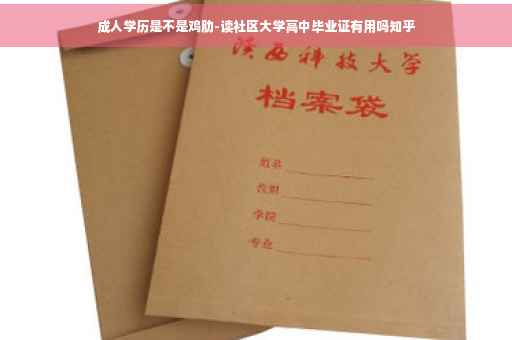 成人学历是不是鸡肋-读社区大学高中毕业证有用吗知乎
陕西科技大学
档案袋
姓名
学院
专业